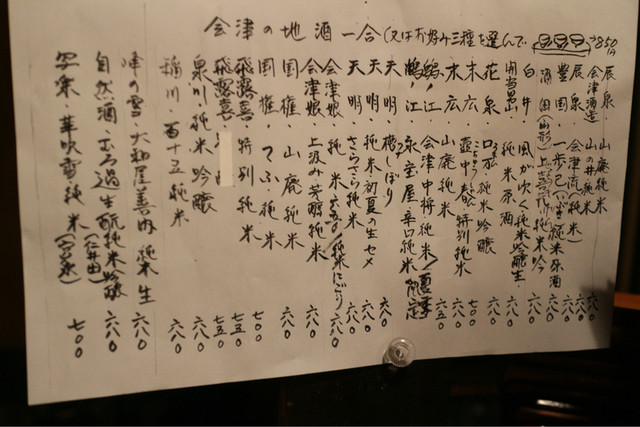 会津の地酒一合(又はお好み三種を選んで 850円
辰泉・山廃純米 六八〇
会津酒造 山の井純米 六八〇
辰泉・会津流純米 六八〇
豊国・一歩己 純米原酒 六八〇
酒田(山形)上喜元 純米吟 六八〇
白井・風が吹く純米吟醸生 六八〇
開当男山 純米原酒 六八〇
花泉 口万 純米吟醸 六八〇
末広・壺中春秋 特別純米 七〇〇
末広・山廃純米 六八〇
鶴ノ江 会津中将純米/夏季限定 六五〇
鶴ノ江・永宝屋 辛口純米
天明・槽しぼり 六八〇
天明・純米初夏の生セメ 六八〇
天明・さらさら純米 六八〇
会津娘 純米 純米にごり 六八〇
会津娘 上汲み 芳醇純米 六八〇
国権・山廃純米 六八〇
国権・てふ・純米 七〇〇
飛露喜・特別純米 七五〇
飛露喜 七五〇
泉川・純米吟醸 六八〇
稲川・百十五純米 六八〇
峰の雪・大和屋善内 純米生 六八〇
自然酒・むろ過生酛純米吟醸(仁井田) 六八〇
写楽・華吹雪純米(宮泉) 七〇〇